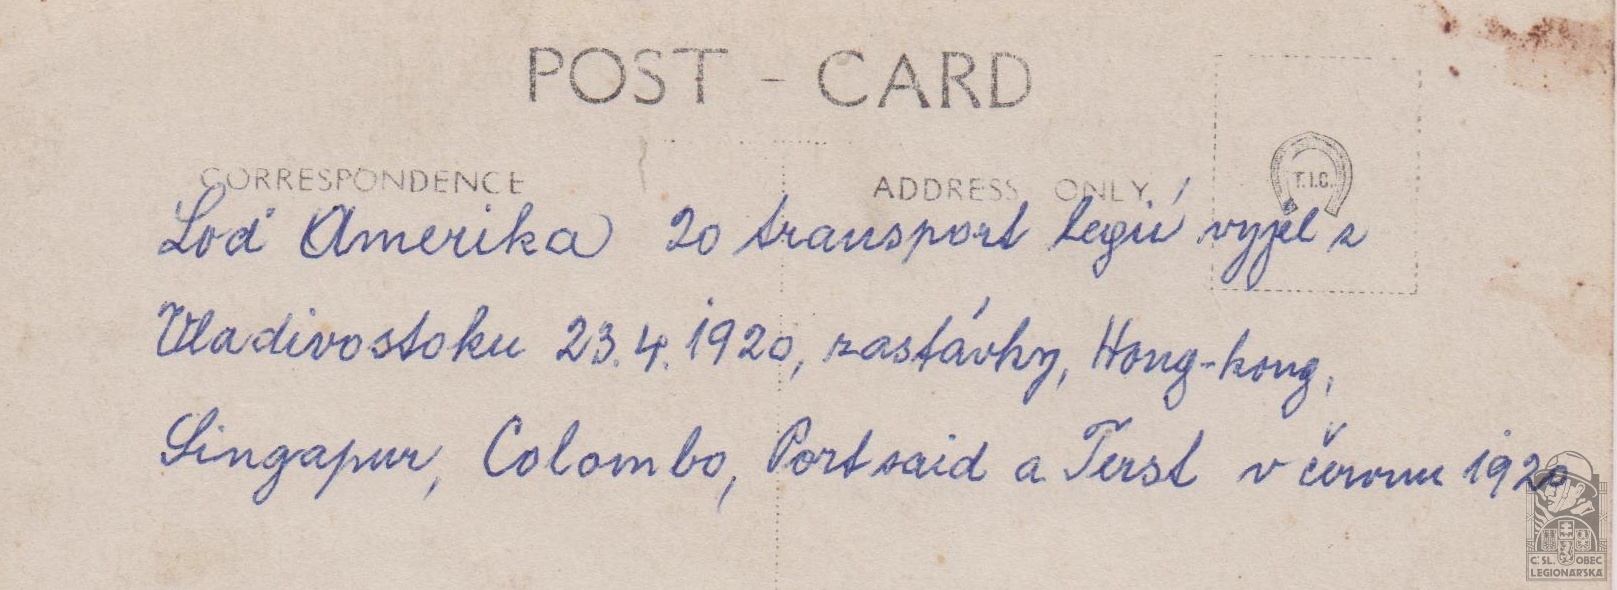 POST - CARD
CORRESPONDENCE
ADDRESS ONLY
T.I.C.
Loď Amerika 20 transport legií vyjel z
Vladivostoku 23.4.1920, zastávky, Hong-kong,
Singapur, Colombo, Portsaid a Terst v červnu 1920
Č.SL. OBEC
LEGIONÁŘSKÁ